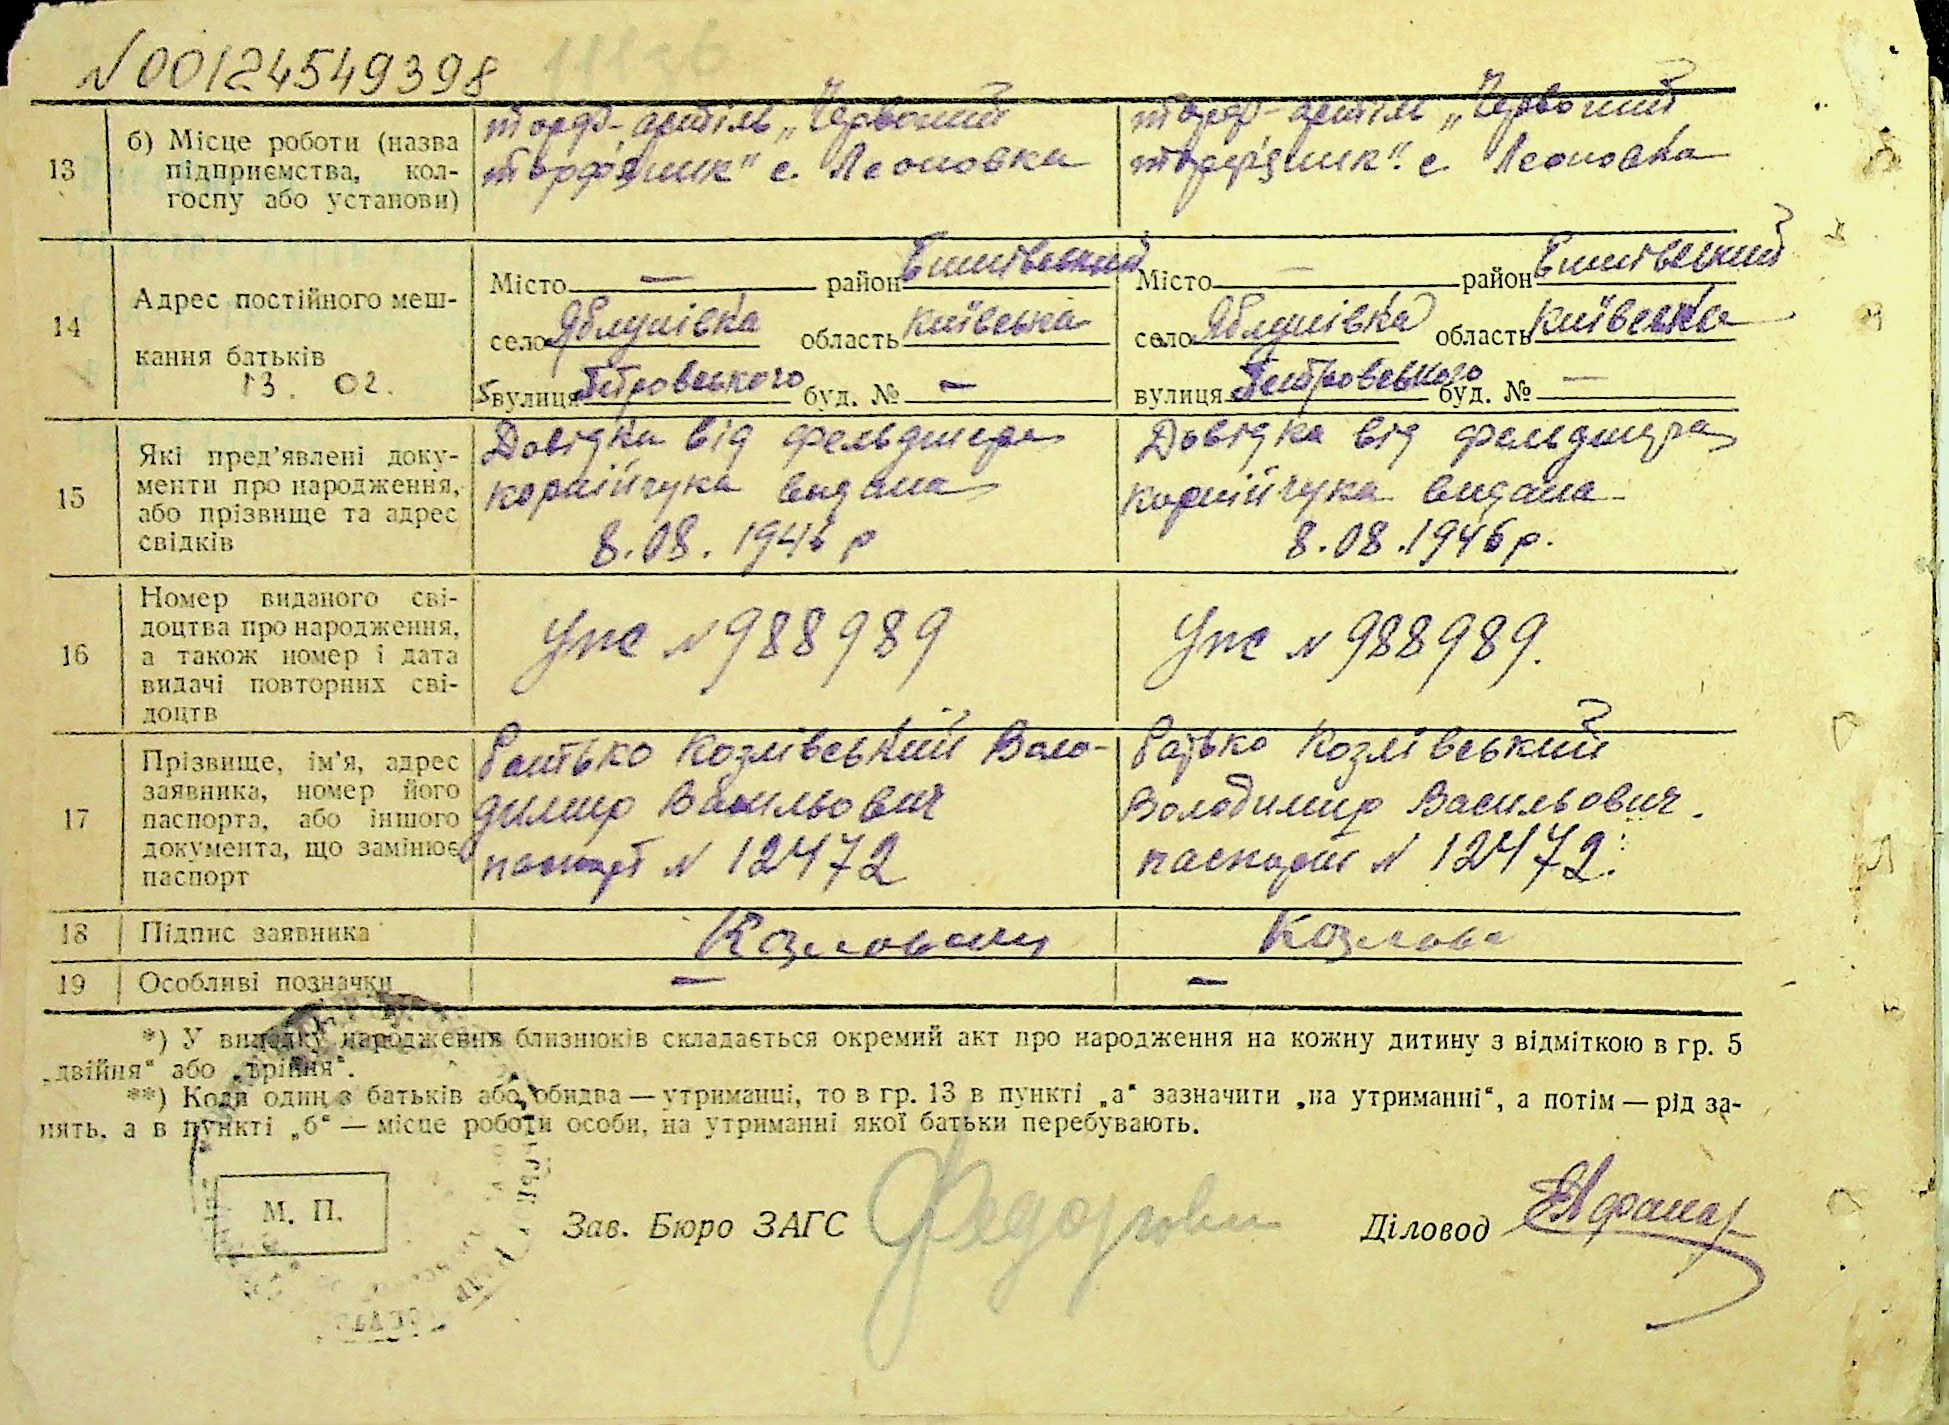 N00124549398
13
б) Місце роботи (назва
підприємства, кол-
госпу або установи)
торф-артіль „Червоний
торфяник" с. Леоновка
торф-артіль „Червоний
торфяник". с. Леоновка
14
Адрес постійного меш-
кання батьків
13. 02.
Місто — район
село Яблунівка область Київська
вулиця Петровського буд. № —
Місто — район
село Яблунівка область Київська
вулиця Петровського буд. № —
15
Які пред'явлені доку-
менти про народження,
або прізвище та адрес
свідків
Довідка від фельдшера
Корнійчука видана
8.08.1946 р
Довідка від фельдшера
Корнійчука видана
8.08.1946 р.
16
Номер виданого сві-
доцтва про народження,
а також номер і дата
видачі повторних сві-
доцтв
N 988989
N 988989.
17
Прізвище, ім'я, адрес
заявника, номер його
паспорта, або іншого
документа, що замінює
паспорт
батько Козлівський Воло-
димир Васильович
паспорт N 12472
батько Козлівський
Володимир Васильович.
паспорт N 12472.
18
Підпис заявника
19
Особливі позначки
—
—
*) У випадку народження близнюків складається окремий акт про народження на кожну дитину з відміткою в гр. 5
„двійня" або „трійня".
**) Коли один з батьків або обидва — утриманці, то в гр. 13 в пункті „а" зазначити „на утриманні", а потім — рід за-
нять, а в пункті „б" — місце роботи особи, на утриманні якої батьки перебувають.
М. П.
Зав. Бюро ЗАГС
Діловод